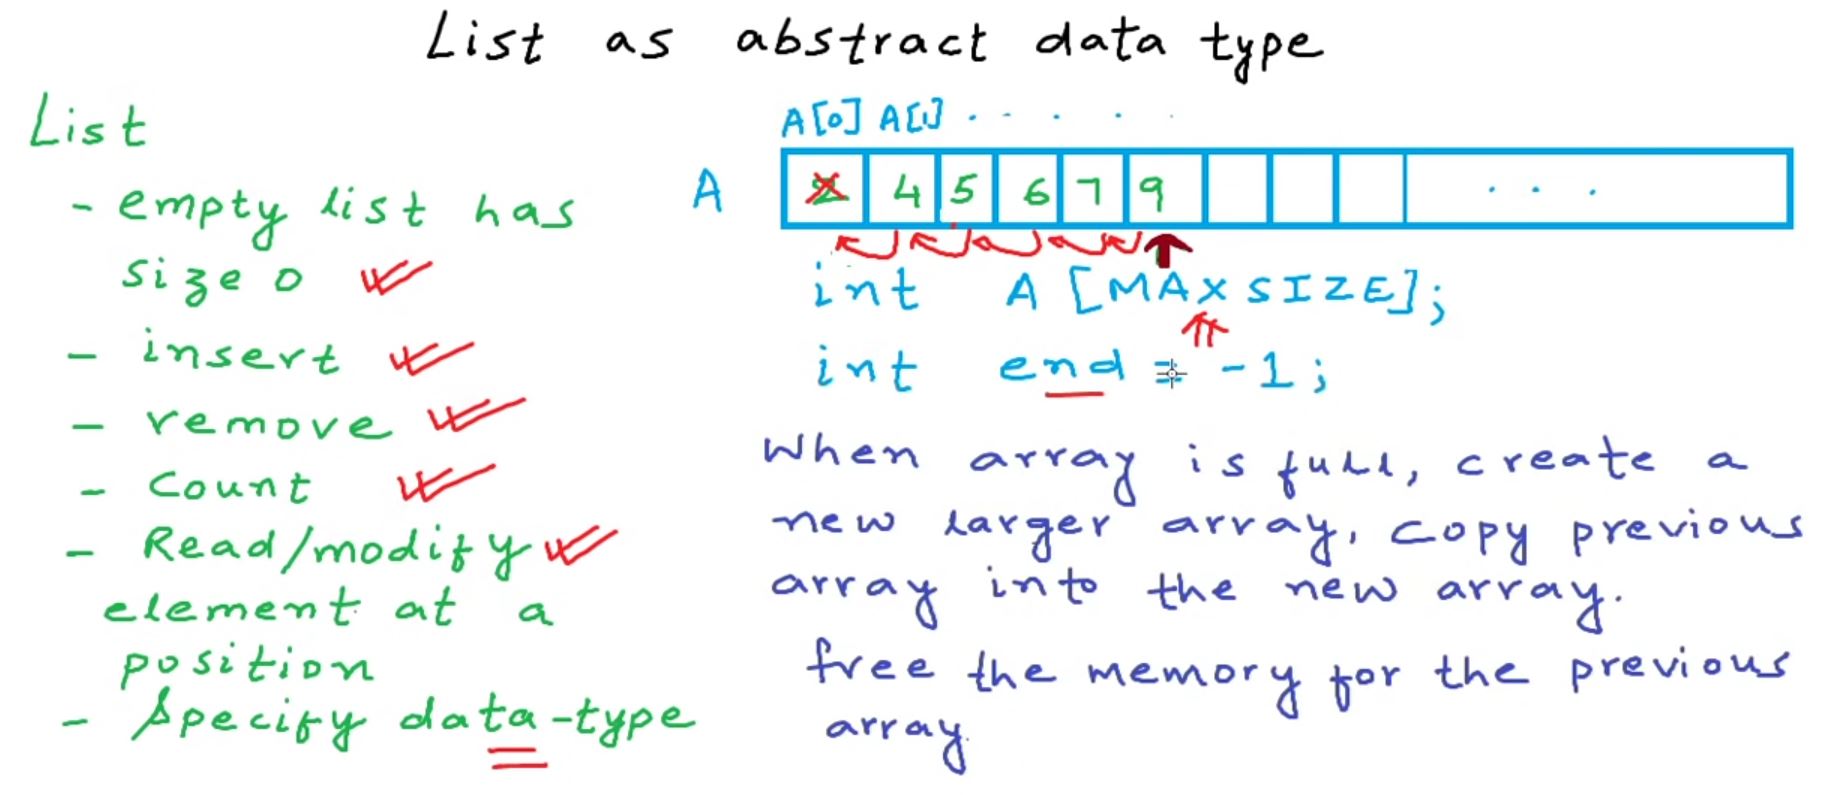 List as abstract data type
List
- empty list has
size 0
- insert
- remove
- Count
- Read/modify
element at a
position
- Specify data-type
A[0] A[1] . . . . .
A 4 5 6 7 9 . . .
int A [MAXSIZE];
int end = -1;
When array is full, create a
new larger array, copy previous
array into the new array.
free the memory for the previous
array.